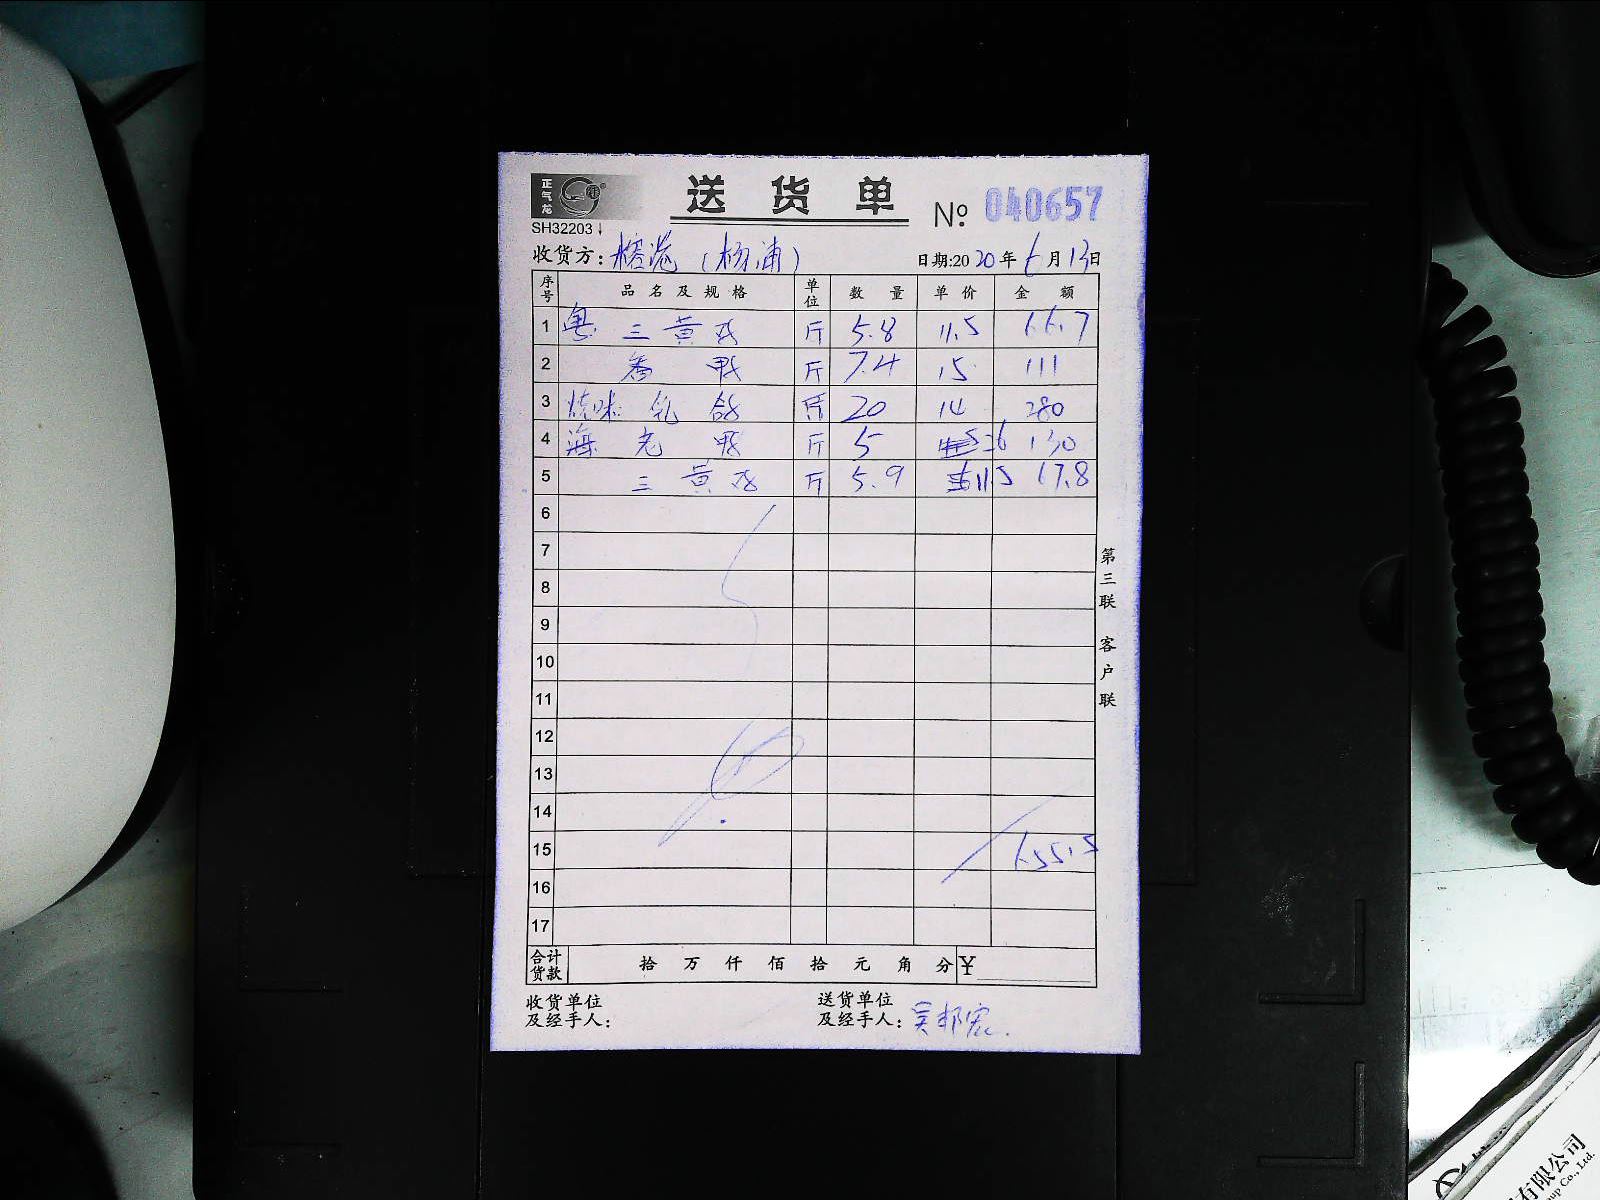 正气龙
送货单
№ 040657
SH32203
收货方:榕港(杨浦)
日期:2020年6月13日
序号 品名及规格 单位 数量 单价 金额
1 粤 三黄鸡 斤 5.8 11.5 66.7
2 番鸭 斤 7.4 15 111
3 烧味 乳鸽 斤 20 14 280
4 海 老鸭 斤 5 26 130
5 三黄鸡 斤 5.9 11.5 67.8
6
7
8
9
10
11
12
13
14
15 655.5
16
17
合计货款 拾 万 仟 佰 拾 元 角 分 ¥
收货单位及经手人:
送货单位及经手人:吴邦宏
第三联 客户联
有限公司
Co., Ltd.